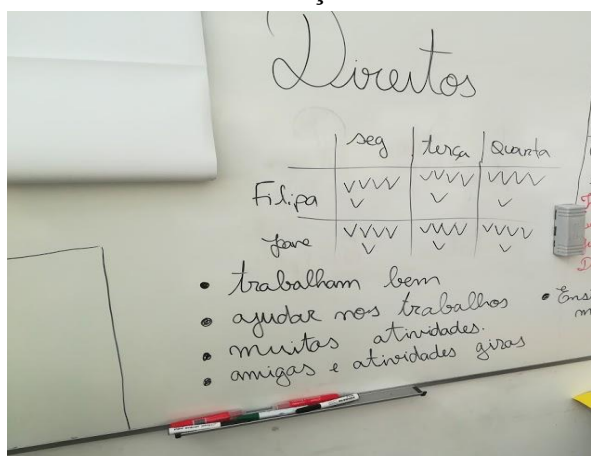 Direitos
seg terça Quarta
Filipa vvvv vvvv vvvv
v v v
vvvv vvvv vvvv
v v v
• trabalham bem
• ajudar nos trabalhos
• Ensi
• muitas atividades.
• amigas e atividades giras